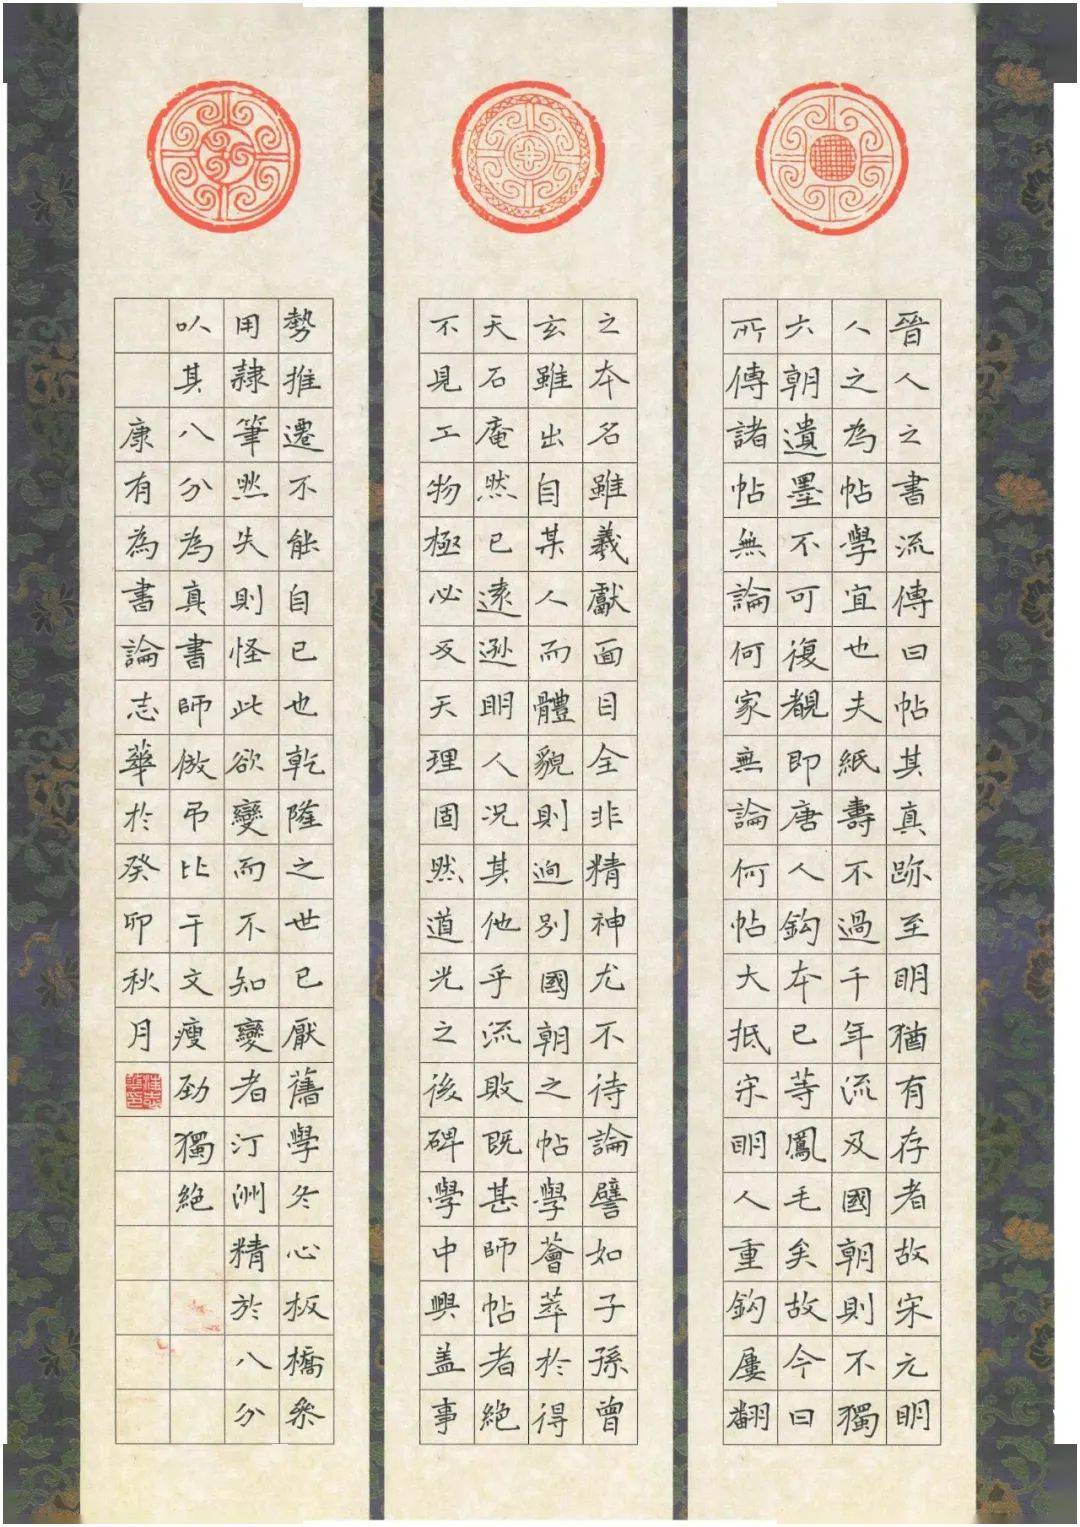 晉人之書流傳曰帖其真跡至明猶有存者故宋元明
人之為帖學宜也夫紙壽不過千年流及國朝則不獨
六朝遺墨不可復覩即唐人鈎本已等鳳毛矣故今曰
所傳諸帖無論何家無論何帖大抵宋明人重鈎屢翻
之本名雖羲獻面目全非精神尤不待論譬如子孫曾
玄雖出自某人而體貌則迥別國朝之帖學薈萃於得
天石庵然已遠逊明人況其他乎流敗既甚師帖者絕
不見工物極必反天理固然道光之後碑學中興盖事
勢推遷不能自已也乾隆之世已厭舊學冬心板橋參
用隸筆然失則怪此欲變而不知變者汀洲精於八分
以其八分為真書師倣吊比干文瘦劲獨絕
康有為書論志華於癸卯秋月